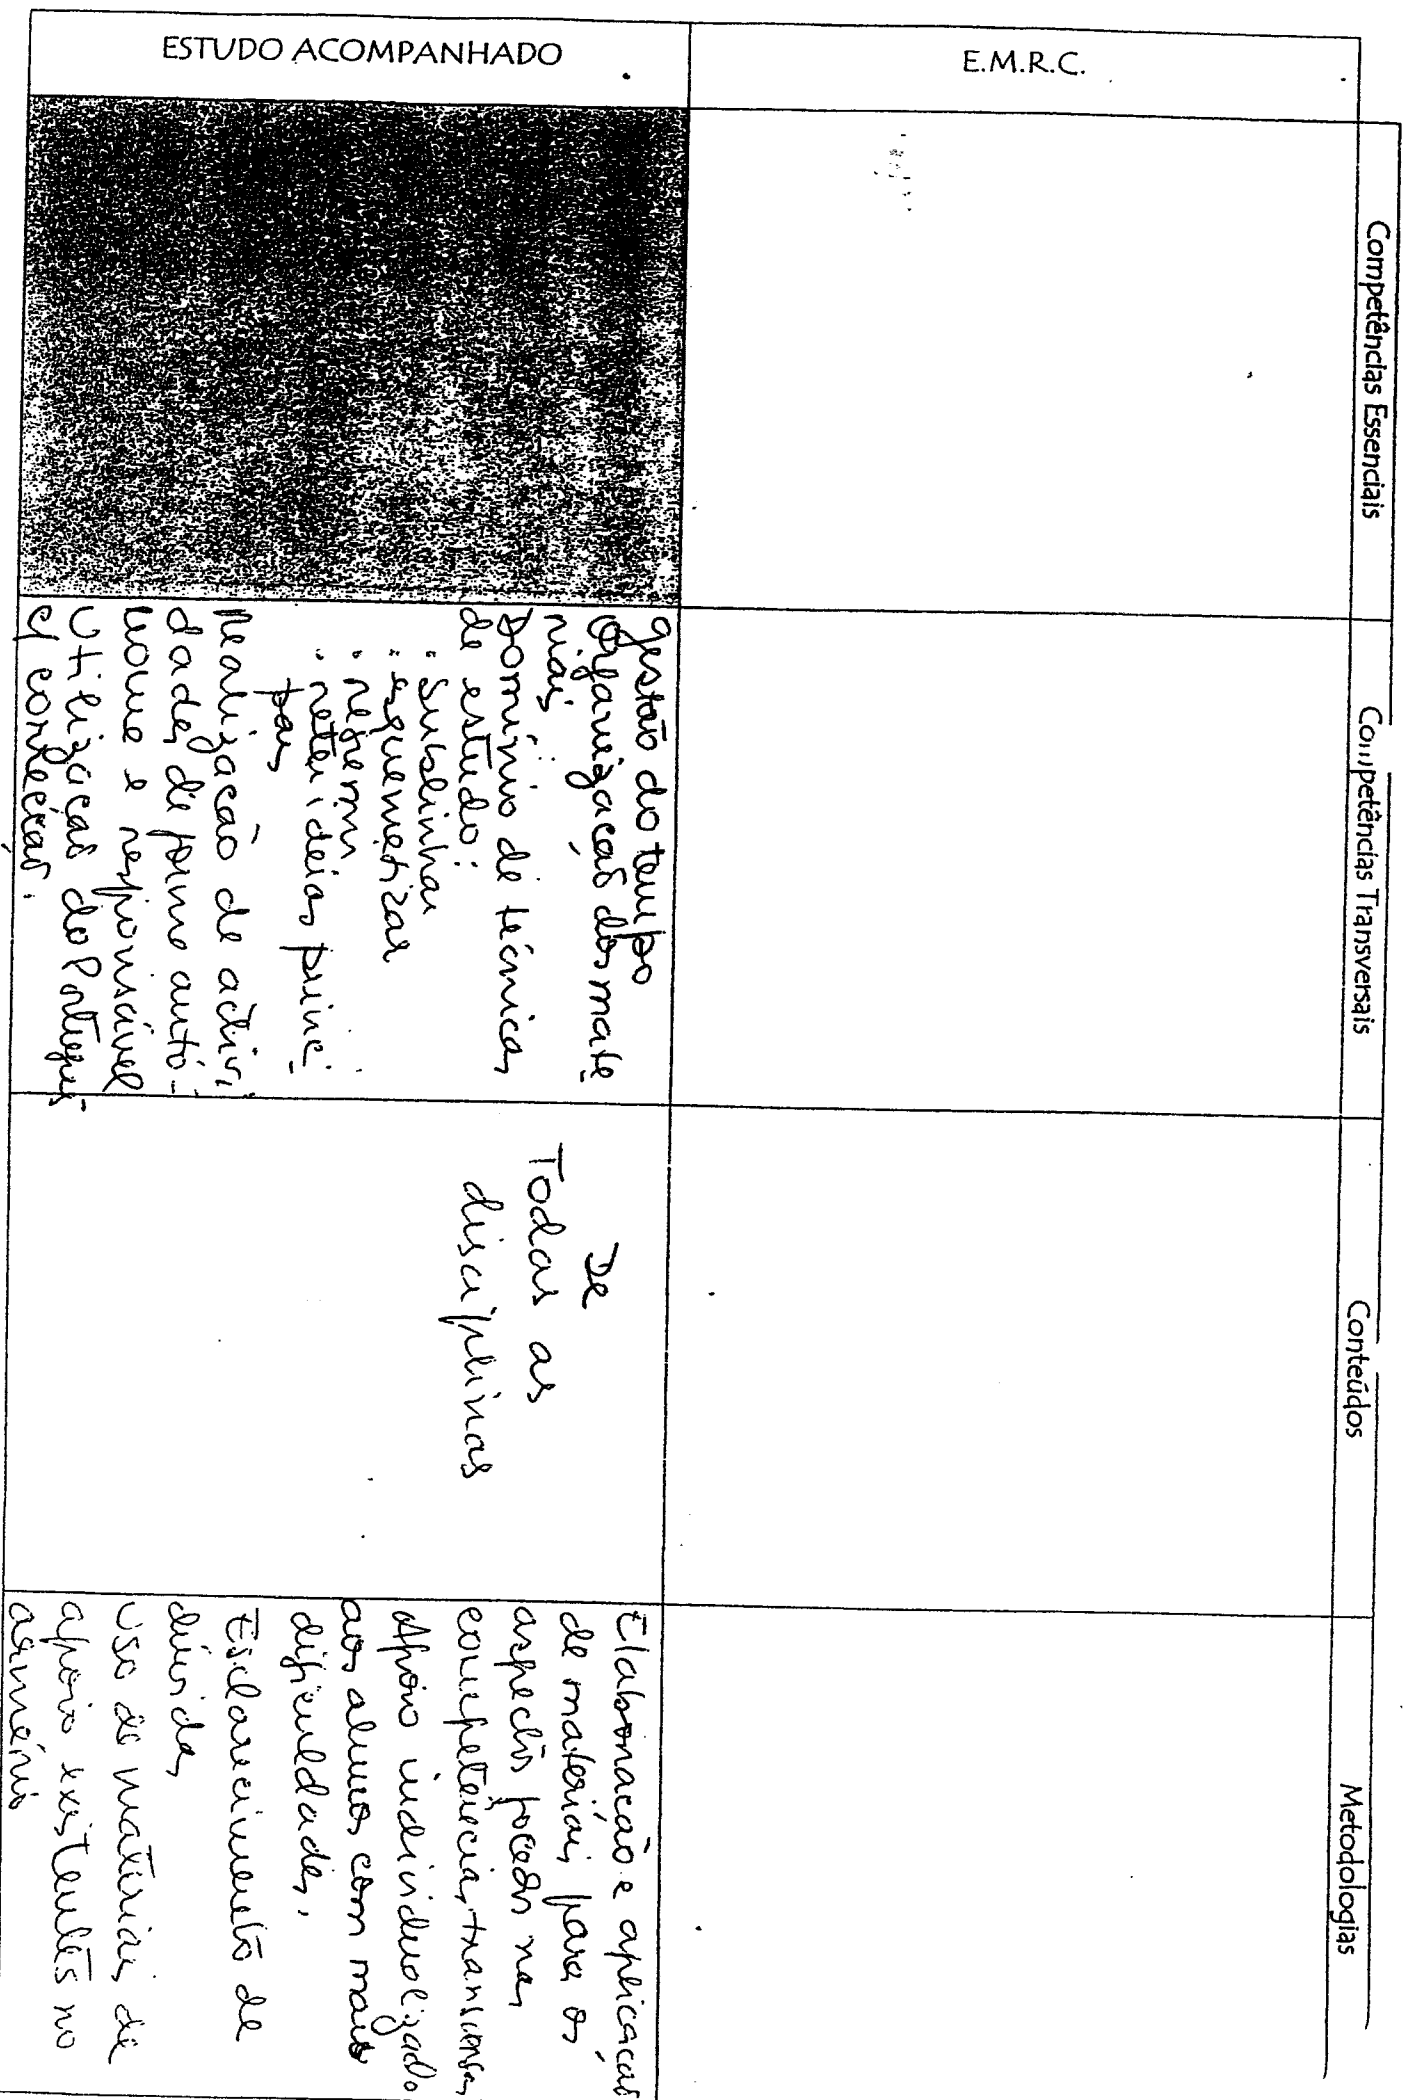 Competências Essenciais
Competências Transversais
Conteúdos
Metodologias
E.M.R.C.
ESTUDO ACOMPANHADO
gestão do tempo
Organização dos mate
riais
Domínio de técnicas
de estudo:
" sublinhar
" esquematizar
" resumir
" reter ideias princi
pais
Realização de activi
dades de forma autó-
noma e responsável
Utilização do Português
c/ correcção.
De
Todas as
disciplinas
Elaboração e aplicação
de materiais para os
aspectos focados nas
competências transversais
Apoio individualizado
aos alunos com mais
dificuldades.
Esclarecimento de
dúvidas
Uso de materiais de
apoio existentes no
armário